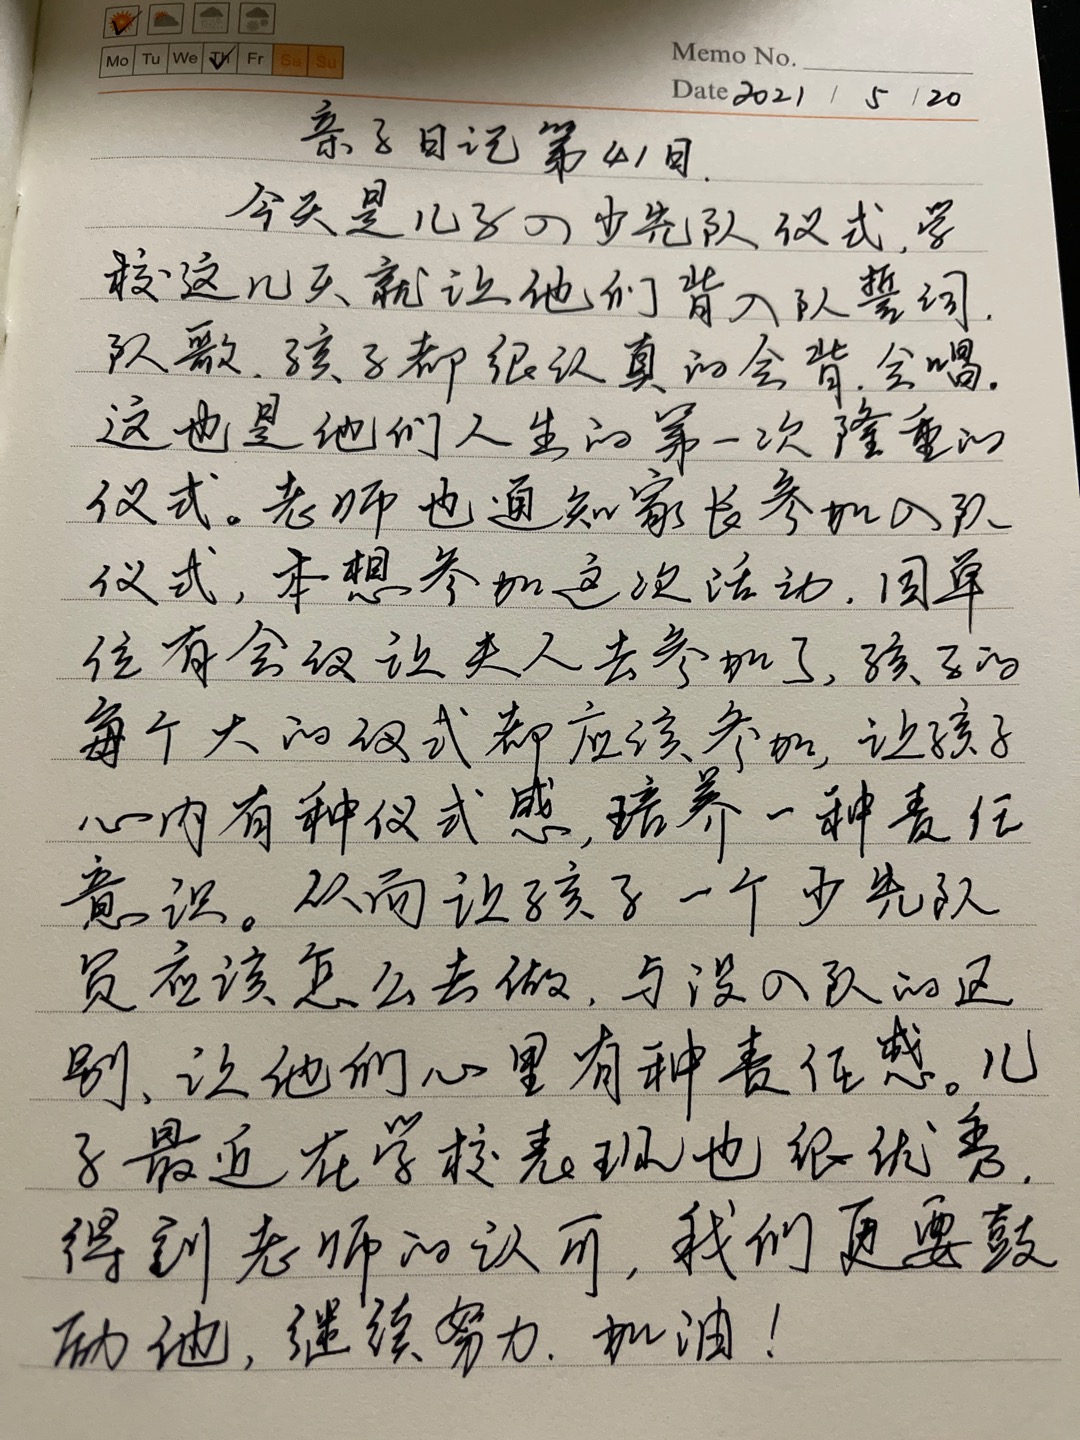 Mo Tu We Th Fr Sa Su
Memo No.
Date 2021 / 5 / 20
亲子日记第41日.
今天是儿子入少先队仪式,学
校这几天就让他们背入队誓词.
队歌.孩子都很认真的会背.会唱.
这也是他们人生的第一次隆重的
仪式。老师也通知家长参加入队
仪式,本想参加这次活动.因单
位有会议让夫人去参加了,孩子的
每个大的仪式都应该参加,让孩子
心内有种仪式感,培养一种责任
意识。从而让孩子一个少先队
员应该怎么去做.与没入队的区
别、让他们心里有种责任感。儿
子最近在学校表现也很优秀.
得到老师的认可,我们更要鼓
励他,继续努力.加油!